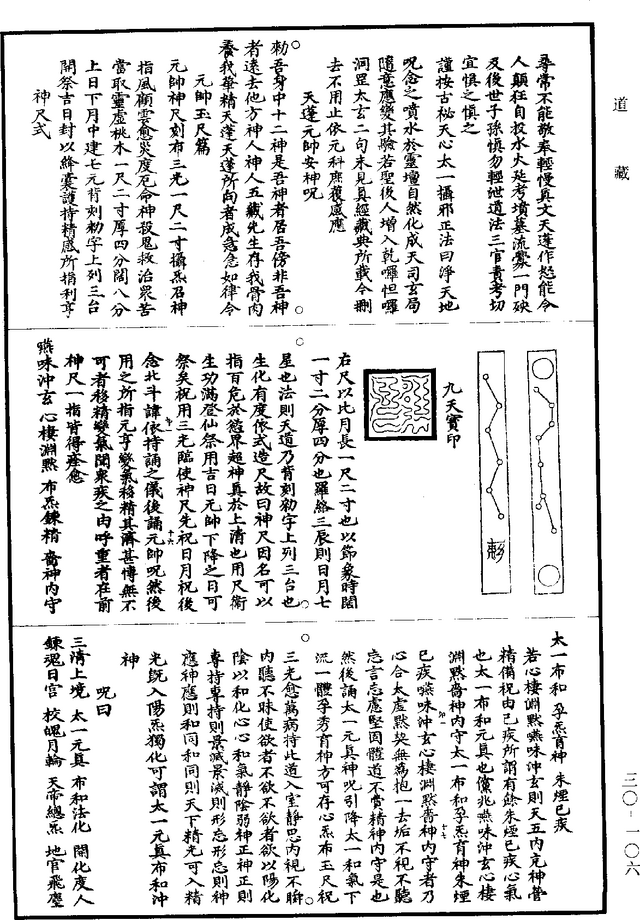 道藏
尋常不能敬奉輕慢真文天蓬作愆能令
人顛狂自投水火延考墳墓流蒙一門殃
及後世子孫慎勿輕泄道法三官責考切
宜慎之慎之
謹按古秘天心太一攝邪正法曰淨天地
呪念之噴水於靈壇自然化成天司玄局
隨意應變其驗若聖後人增入乾囉怛囉
洞罡太玄二句未見真經藏典所載今刪
去不用止依元科庶獲感應
天蓬元帥安神呪
勑吾身中十二神是吾神者居吾傍非吾神
者遠去他方神人神人五藏先生存我骨肉
養我華精天蓬天蓬所向者成急急如律令
元帥玉尺篇
元帥神尺刻布三光一尺二寸攝炁召神
指風顧雲愈災度厄命神殺鬼救治眾苦
當取靈虛桃木一尺二寸厚四分闊八分
上日下月中建七元背刻勑字上列三台
開祭吉日封以絳囊護持精感所捐利亨
神尺式
九天寶印
勑
右尺以比月長一尺二寸也以節象時闊
一寸二分厚四分也羅絡三辰則日月七
星也法則天道乃背刻勑字上列三台也
生化有度依式造尺故曰神尺因名可以
指百危於慾界超神真於上清也用尺衛
生功滿登仙祭用吉日元帥下降之日可
祭矣祝用三光臨使神尺先祝日月祝後
念北斗諱依持誦之儀後誦元帥呪然後
用之所指元亨變氣移精其濟甚博無不
可者移精變氣聞眾疾之由呼重者在前
神尺一指皆得痊愈
嚥味沖玄 心棲淵默 布炁鍊精 嗇神内守
太一布和 孕炁育神 朱煙已疾
若心棲淵默嚥味沖玄則天五内充神營
精備祝由已疾所謂有餘朱煙已疾心氣
也太一布和元真也儻兆嚥味沖玄心棲
淵默嗇神内守太一布和孕炁育神朱煙
已疾嚥味沖玄心棲淵默嗇神内守者乃
心合太虛默契無為抱一去垢不視不聽
忘言忘慮堅固體道不嘗精神内守是也
然後誦太一元真神呪引降太一和氣下
流一體孕秀育神方可存心炁布玉尺祝
三光愈萬病持此道入室靜思内視不瞬
内聽不昧使欲者不欲不欲者欲以陽化
陰以和化心心和氣靜陰弱神正神正則
專持專持則景滅景滅則形忘形忘則神
應神應則和同和同則天下精光可入精
光既入陽炁獨化可謂太一元真布和沖
神
呪曰
三清上境 太一元真 布和法化 開化度人
鍊魂日宮 校魄月輪 天帝總炁 地官飛塵
三〇-一〇六